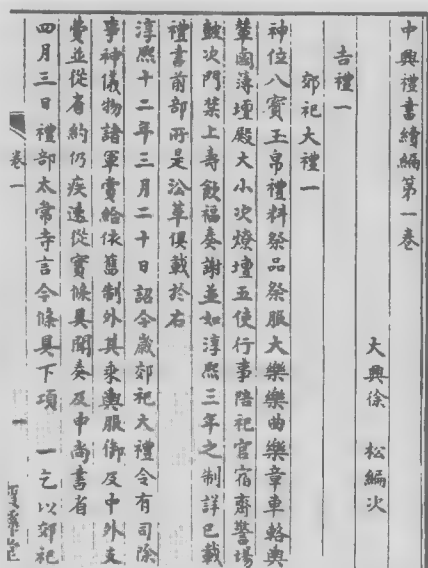 中興禮書續編第一卷
大興徐　松編次
吉禮一
郊祀大禮一
神位八寳玉帛禮料祭品祭服大樂樂曲樂章車輅輿
輦鹵簿壇殿大小次燎壇五使行事陪祀官宿齋警場
皷次門禁上壽飲福奏謝並如淳熙三年之制詳已載
禮書前部所是沿革俱載於右
淳熙十二年三月二十日詔今歲郊祀大禮令有司除
事神儀物諸軍賞給依舊制外其乘輿服御及中外支
費並從省約仍疾速從實條具聞奏及申尚書省
四月三日禮部太常寺言今條具下項　一乞以郊祀
卷一
一